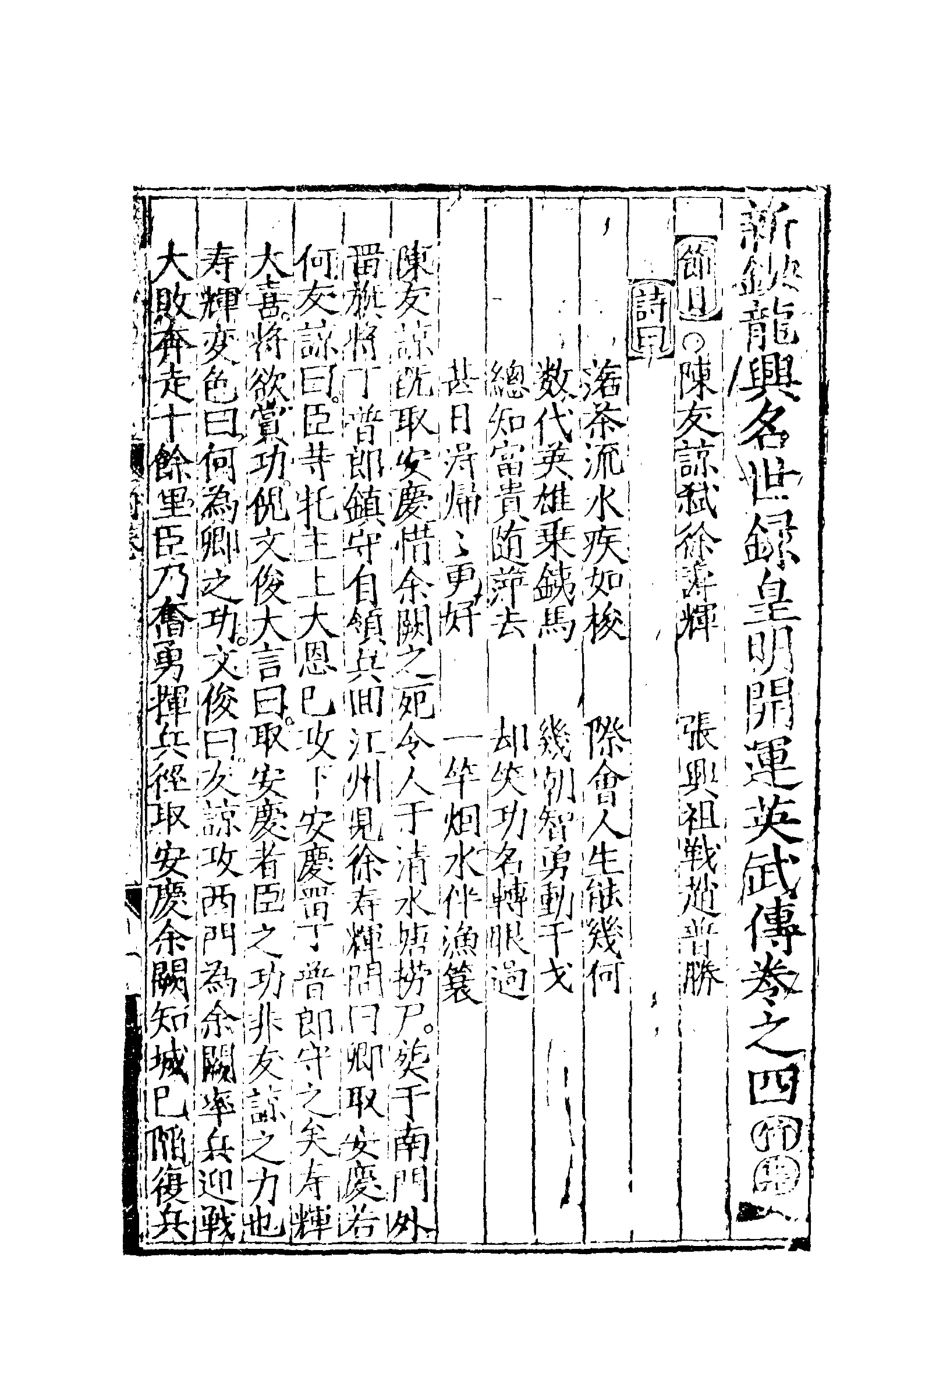 新鈔龍興名世録皇明開運英武傳巻之四
節目○陳友諒弑徐壽輝 張興祖戦趙普勝
詩曰
滔〻流水疾如梭 際會人生能幾何
数代英雄乗鉄馬 幾朝智勇動干戈
總知富貴随萍去 却笑功名轉眼過
甚日淂帰〻更好 一竿烟水伴漁簑
陳友諒既取安慶惜余闕之死令人于清水塘捞尸。葬于南門外
畱旗将丁普郎鎮守自領兵囬江州見徐寿輝問曰卿取安慶若
何友諒曰。臣等托主上大恩已攻下安慶畱丁普郎守之矣寿輝
大喜。将欲賞功。倪文俊大言曰。取安慶者臣之功非友諒之力也
寿輝变色曰何為卿之功。文俊曰友諒攻西門為余闕率兵迎戦
大敗奔走十餘里臣乃奮勇揮兵徑取安慶余闕知城已陥復兵